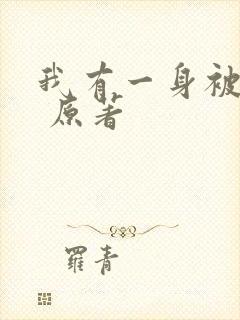 我有一身被
原著
羅青